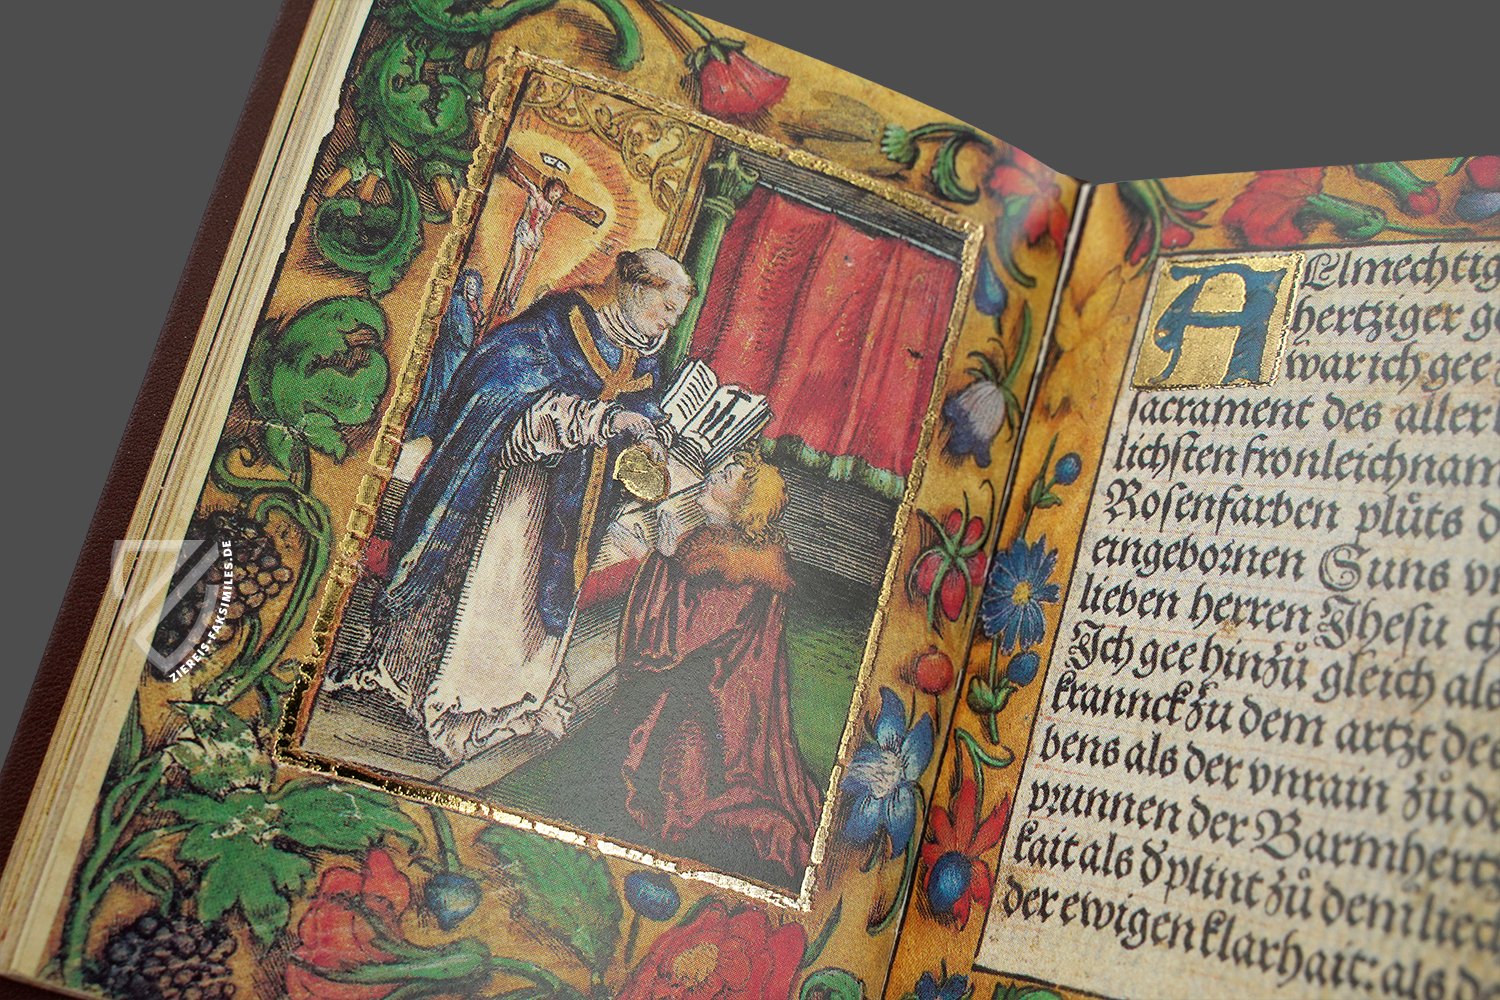 Almechtig
hertziger
war ich gee
sacrament des aller
lichsten fronleichnam
Rosenfarben plůts d
eingebornen Suns vn
lieben herren Jhesu ch
Ich gee hin zů gleich als
krannck zu dem artzt des
bens als der vnrain zů d
prunnen der Barmhertz
kait als d̕ plint zů dem liec
der ewigen klarhait: als d
ZIEREIS-FAKSIMILES.DE